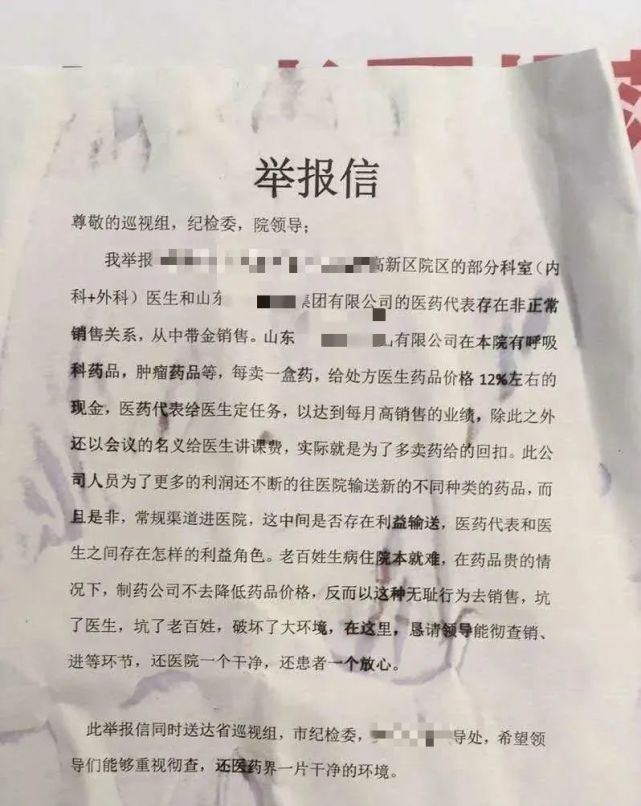 举报信
尊敬的巡视组，纪检委，院领导；
我举报高新区院区的部分科室（内
科+外科）医生和山东集团有限公司的医药代表存在非正常
销售关系，从中带金销售。山东有限公司在本院有呼吸
科药品，肿瘤药品等，每卖一盒药，给处方医生药品价格 12%左右的
现金，医药代表给医生定任务，以达到每月高销售的业绩，除此之外
还以会议的名义给医生讲课费，实际就是为了多卖药给的回扣。此公
司人员为了更多的利润还不断的往医院输送新的不同种类的药品，而
且是非，常规渠道进医院，这中间是否存在利益输送，医药代表和医
生之间存在怎样的利益角色。老百姓生病住院本就难，在药品贵的情
况下，制药公司不去降低药品价格，反而以这种无耻行为去销售，坑
了医生，坑了老百姓，破坏了大环境，在这里，恳请领导能彻查销、
进等环节，还医院一个干净，还患者一个放心。
此举报信同时送达省巡视组，市纪检委，导处，希望领
导们能够重视彻查，还医药界一片干净的环境。